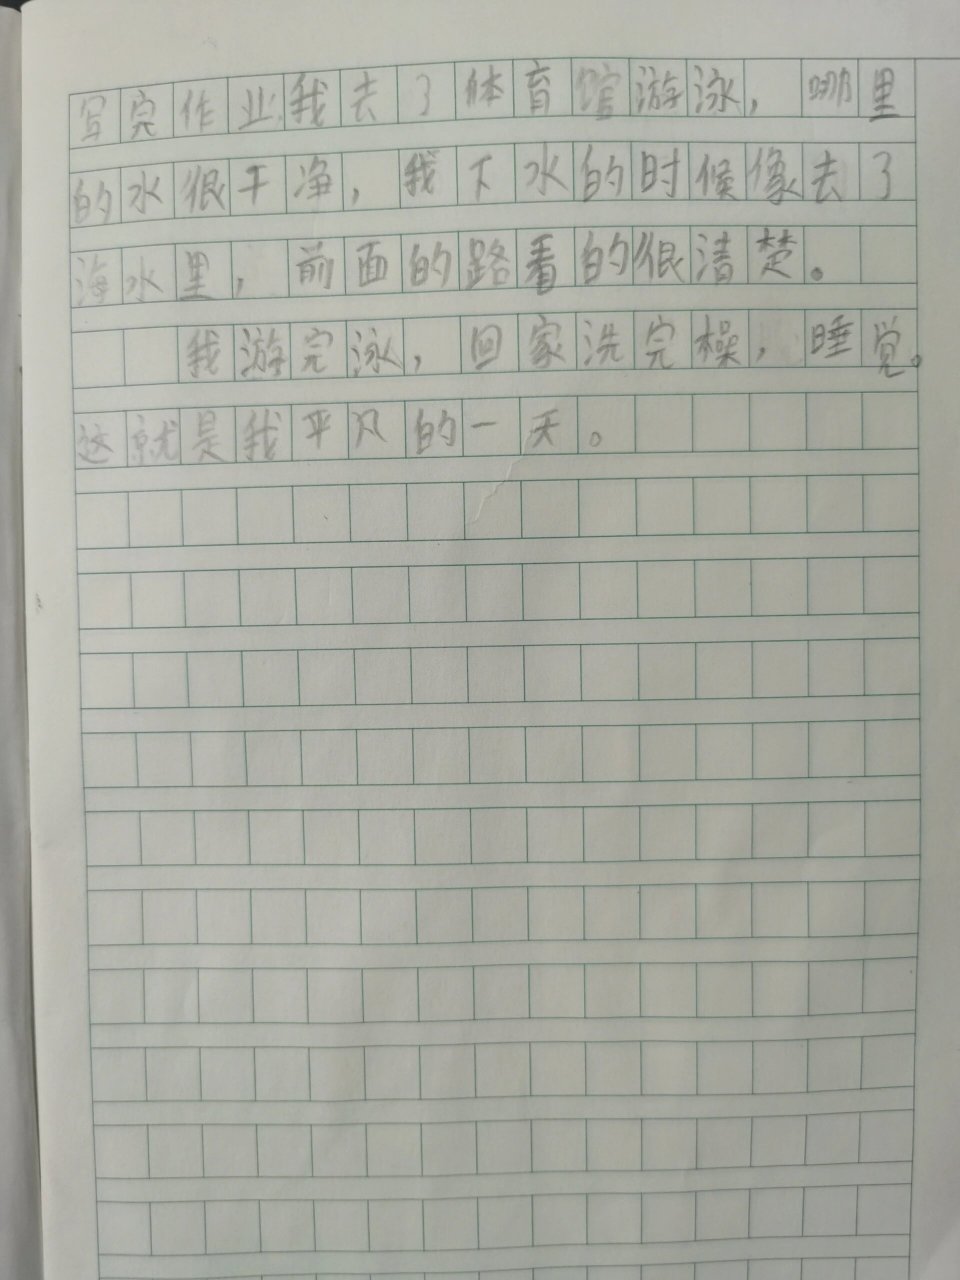 写完作业,我去了体育馆游泳,哪里
的水很干净,我下水的时候像去了
海水里,前面的路看的很清楚。
我游完泳,回家洗完橾,睡觉。
这就是我平凡的一天。